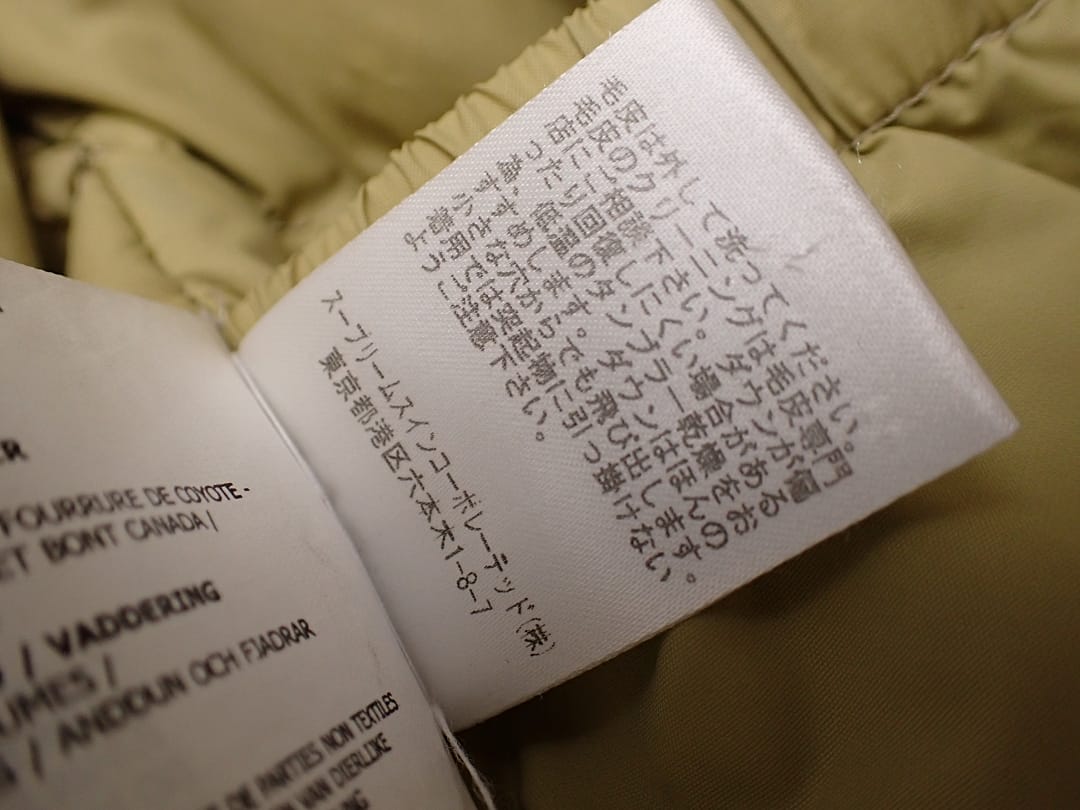 毛皮は外して洗ってください。
毛皮のクリーニングは毛皮専門
店にご相談下さい。ダウンが偏
ったり回復しにくい場合がある
為、低温のタンブラー乾燥をお
すすめします。ダウンはほんの
小さな穴からでも飛び出します。
着用では突起物に引っ掛けない
ようご注意下さい。
スープリームスインコーポレーテッド(株)
東京都港区六本木1-8-7
FOURRURE DE COYOTE -
ET BONT CANADA |
/ VADDERING
/ ANDDUN OCH FJADRAR
DE PARTIES NON TEXTILES
VAN DIERLIJKE